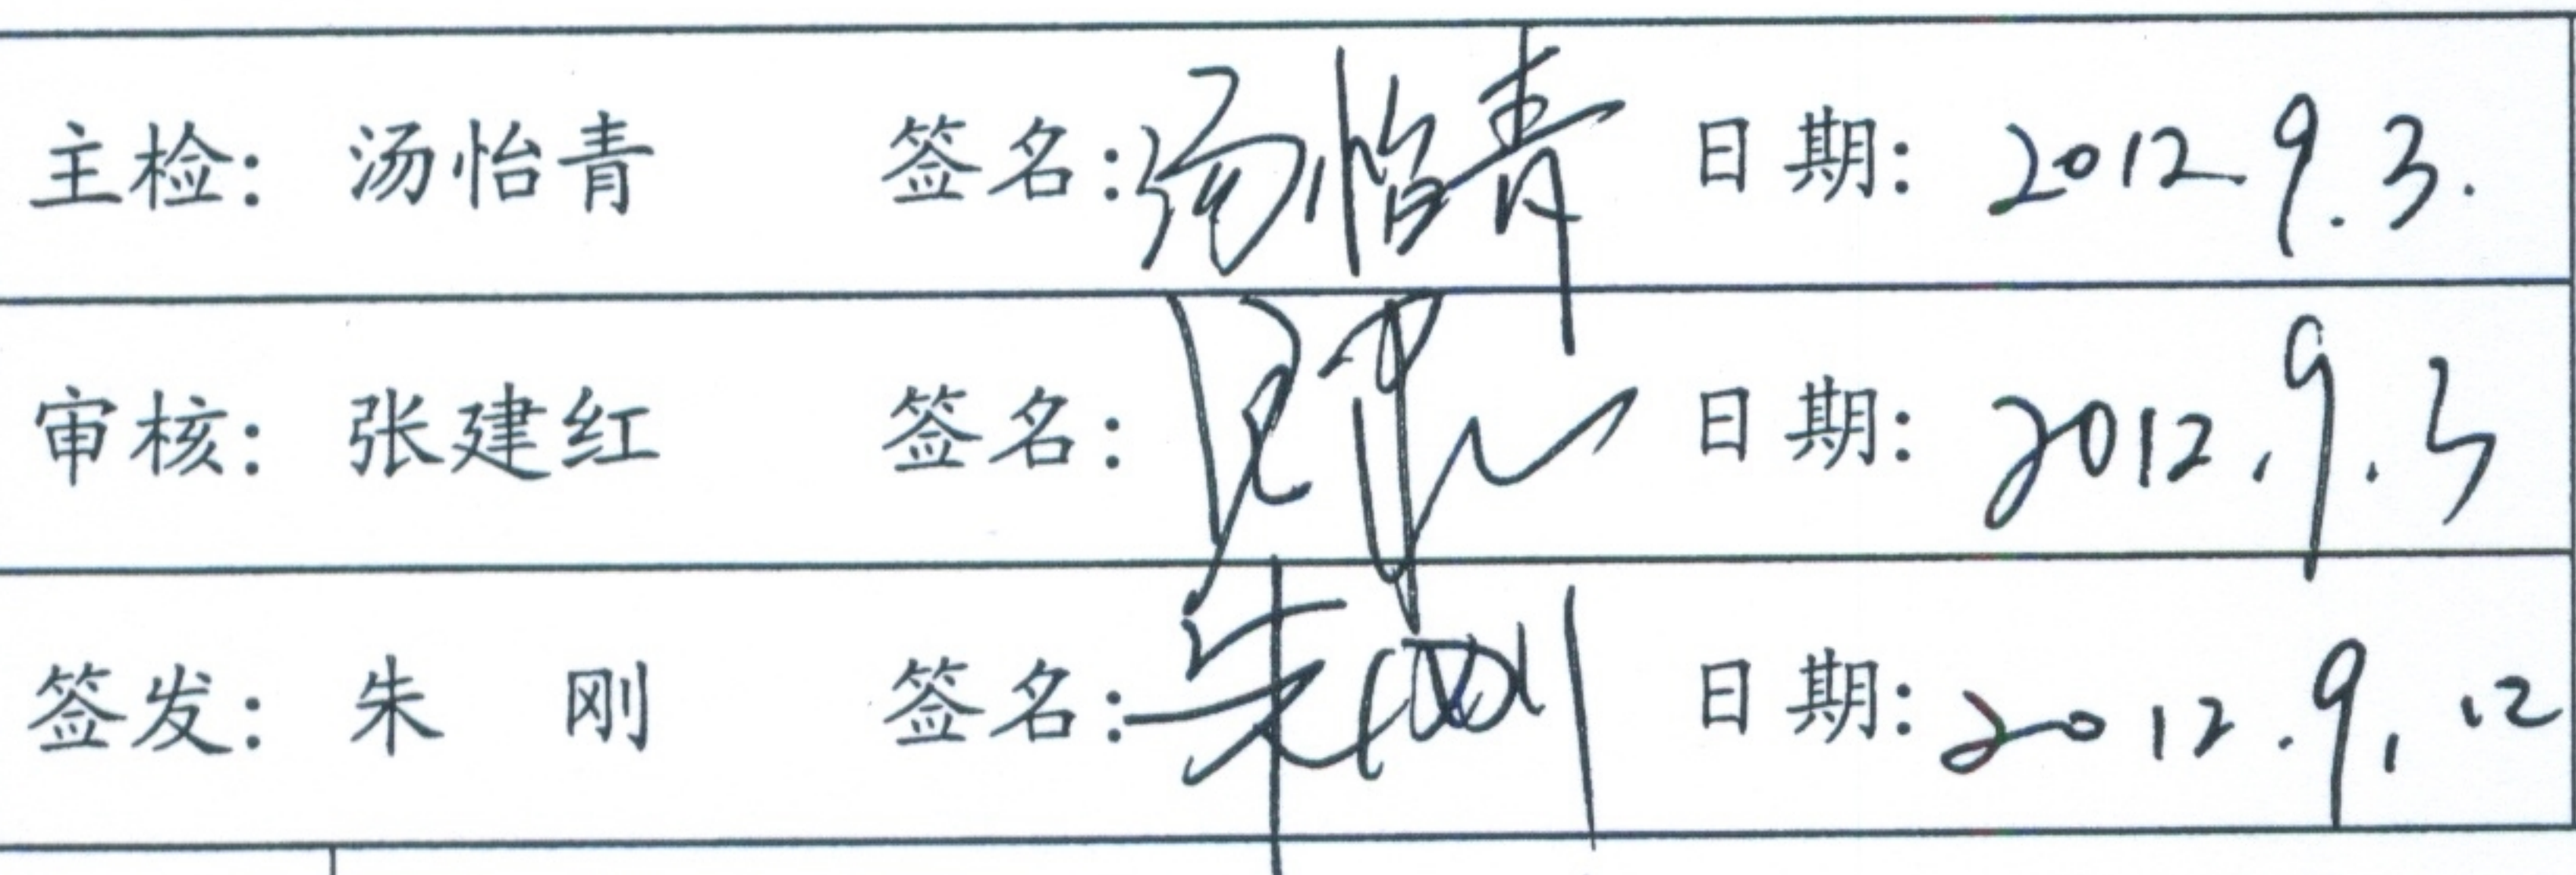 主检: 汤怡青 签名: 汤怡青 日期: 2012 9.3.
审核: 张建红 签名: 日期: 2012.9.3
签发: 朱 刚 签名: 朱刚 日期: 2012.9.12